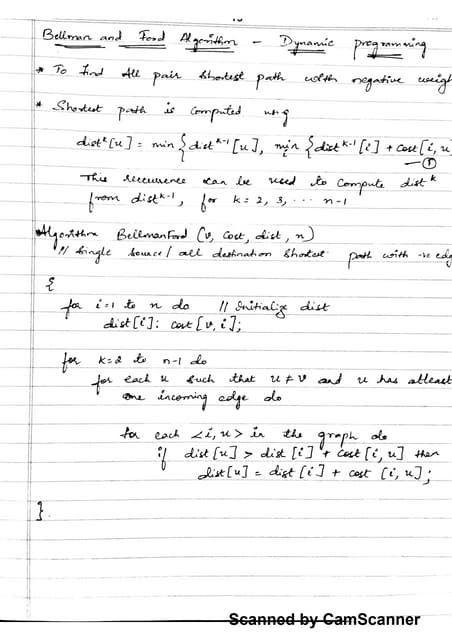 Bellman and Ford Algorithm - Dynamic programming
* To find All pair shortest path with negative weigh
* Shortest path is computed using
dist^k[u] = min { dist^k-1 [u], min { dist^k-1 [i] + cost [i, u
i
—①
This recurrence can be used to compute dist^k
from dist^k-1, for k = 2, 3, ... n-1
Algorithm BellmanFord (v, cost, dist, n)
// Single source / all destination shortest path with -ve edg
{
for i=1 to n do // Initialize dist
dist[i]: cost [v, i];
for k=2 to n-1 do
for each u such that u ≠ v and u has atleast
one incoming edge do
for each <i, u> in the graph do
if dist [u] > dist [i] + cost [i, u] then
dist [u] = dist [i] + cost [i, u];
}
Scanned by CamScanner